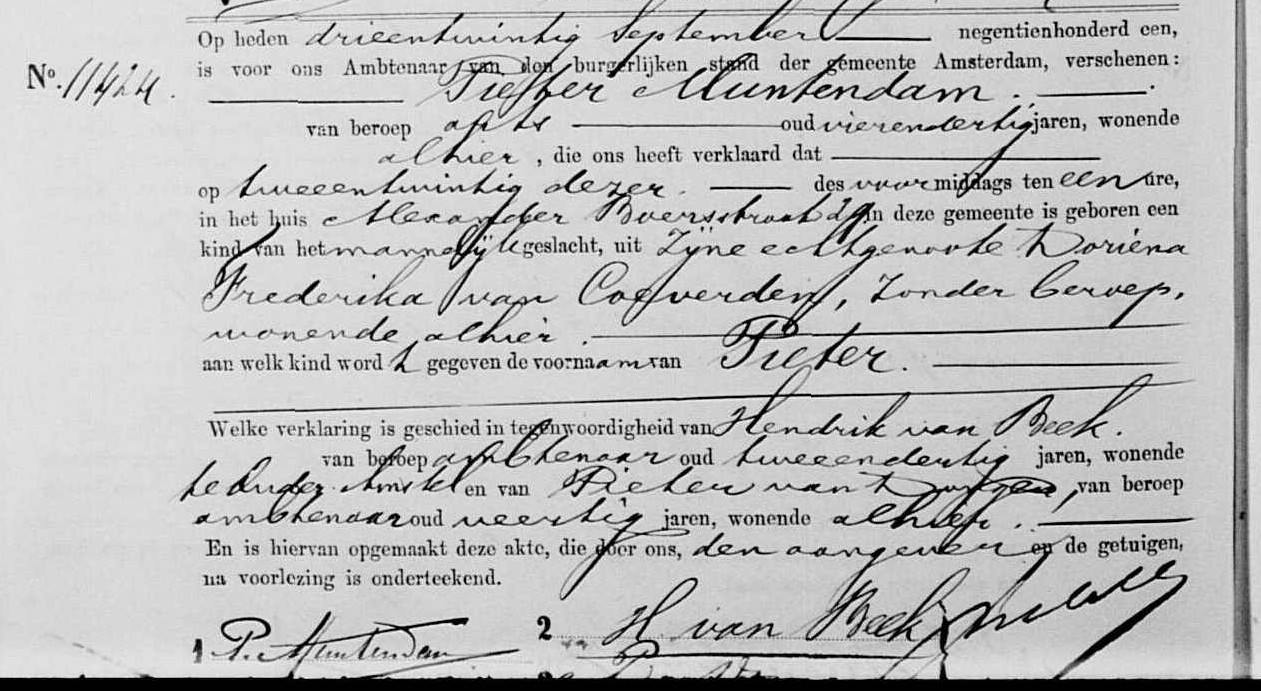 Op heden drieentwintig September negentienhonderd een,
No. 11424. is voor ons Ambtenaar van den burgerlijken stand der gemeente Amsterdam, verschenen:
Pieter Muntendam.
van beroep arts oud vierendertig jaren, wonende
alhier, die ons heeft verklaard dat
op tweeentwintig dezer. des voormiddags ten een ure,
in het huis Alexander Boersstraat in deze gemeente is geboren een
kind van het mannelijk geslacht, uit Zijne echtgenoote Doriena
Frederika van Coeverden, zonder beroep,
wonende alhier.
aan welk kind wordt gegeven de voornaam van Pieter.
Welke verklaring is geschied in tegenwoordigheid van Hendrik van Beek.
van beroep ambtenaar oud tweeendertig jaren, wonende
te Ouder-Amstel en van Pieter van, van beroep
ambtenaar oud veertig jaren, wonende alhier.
En is hiervan opgemaakt deze akte, die door ons, den aangever en de getuigen,
na voorlezing is onderteekend.
1 P. Muntendam 2 H van Beek